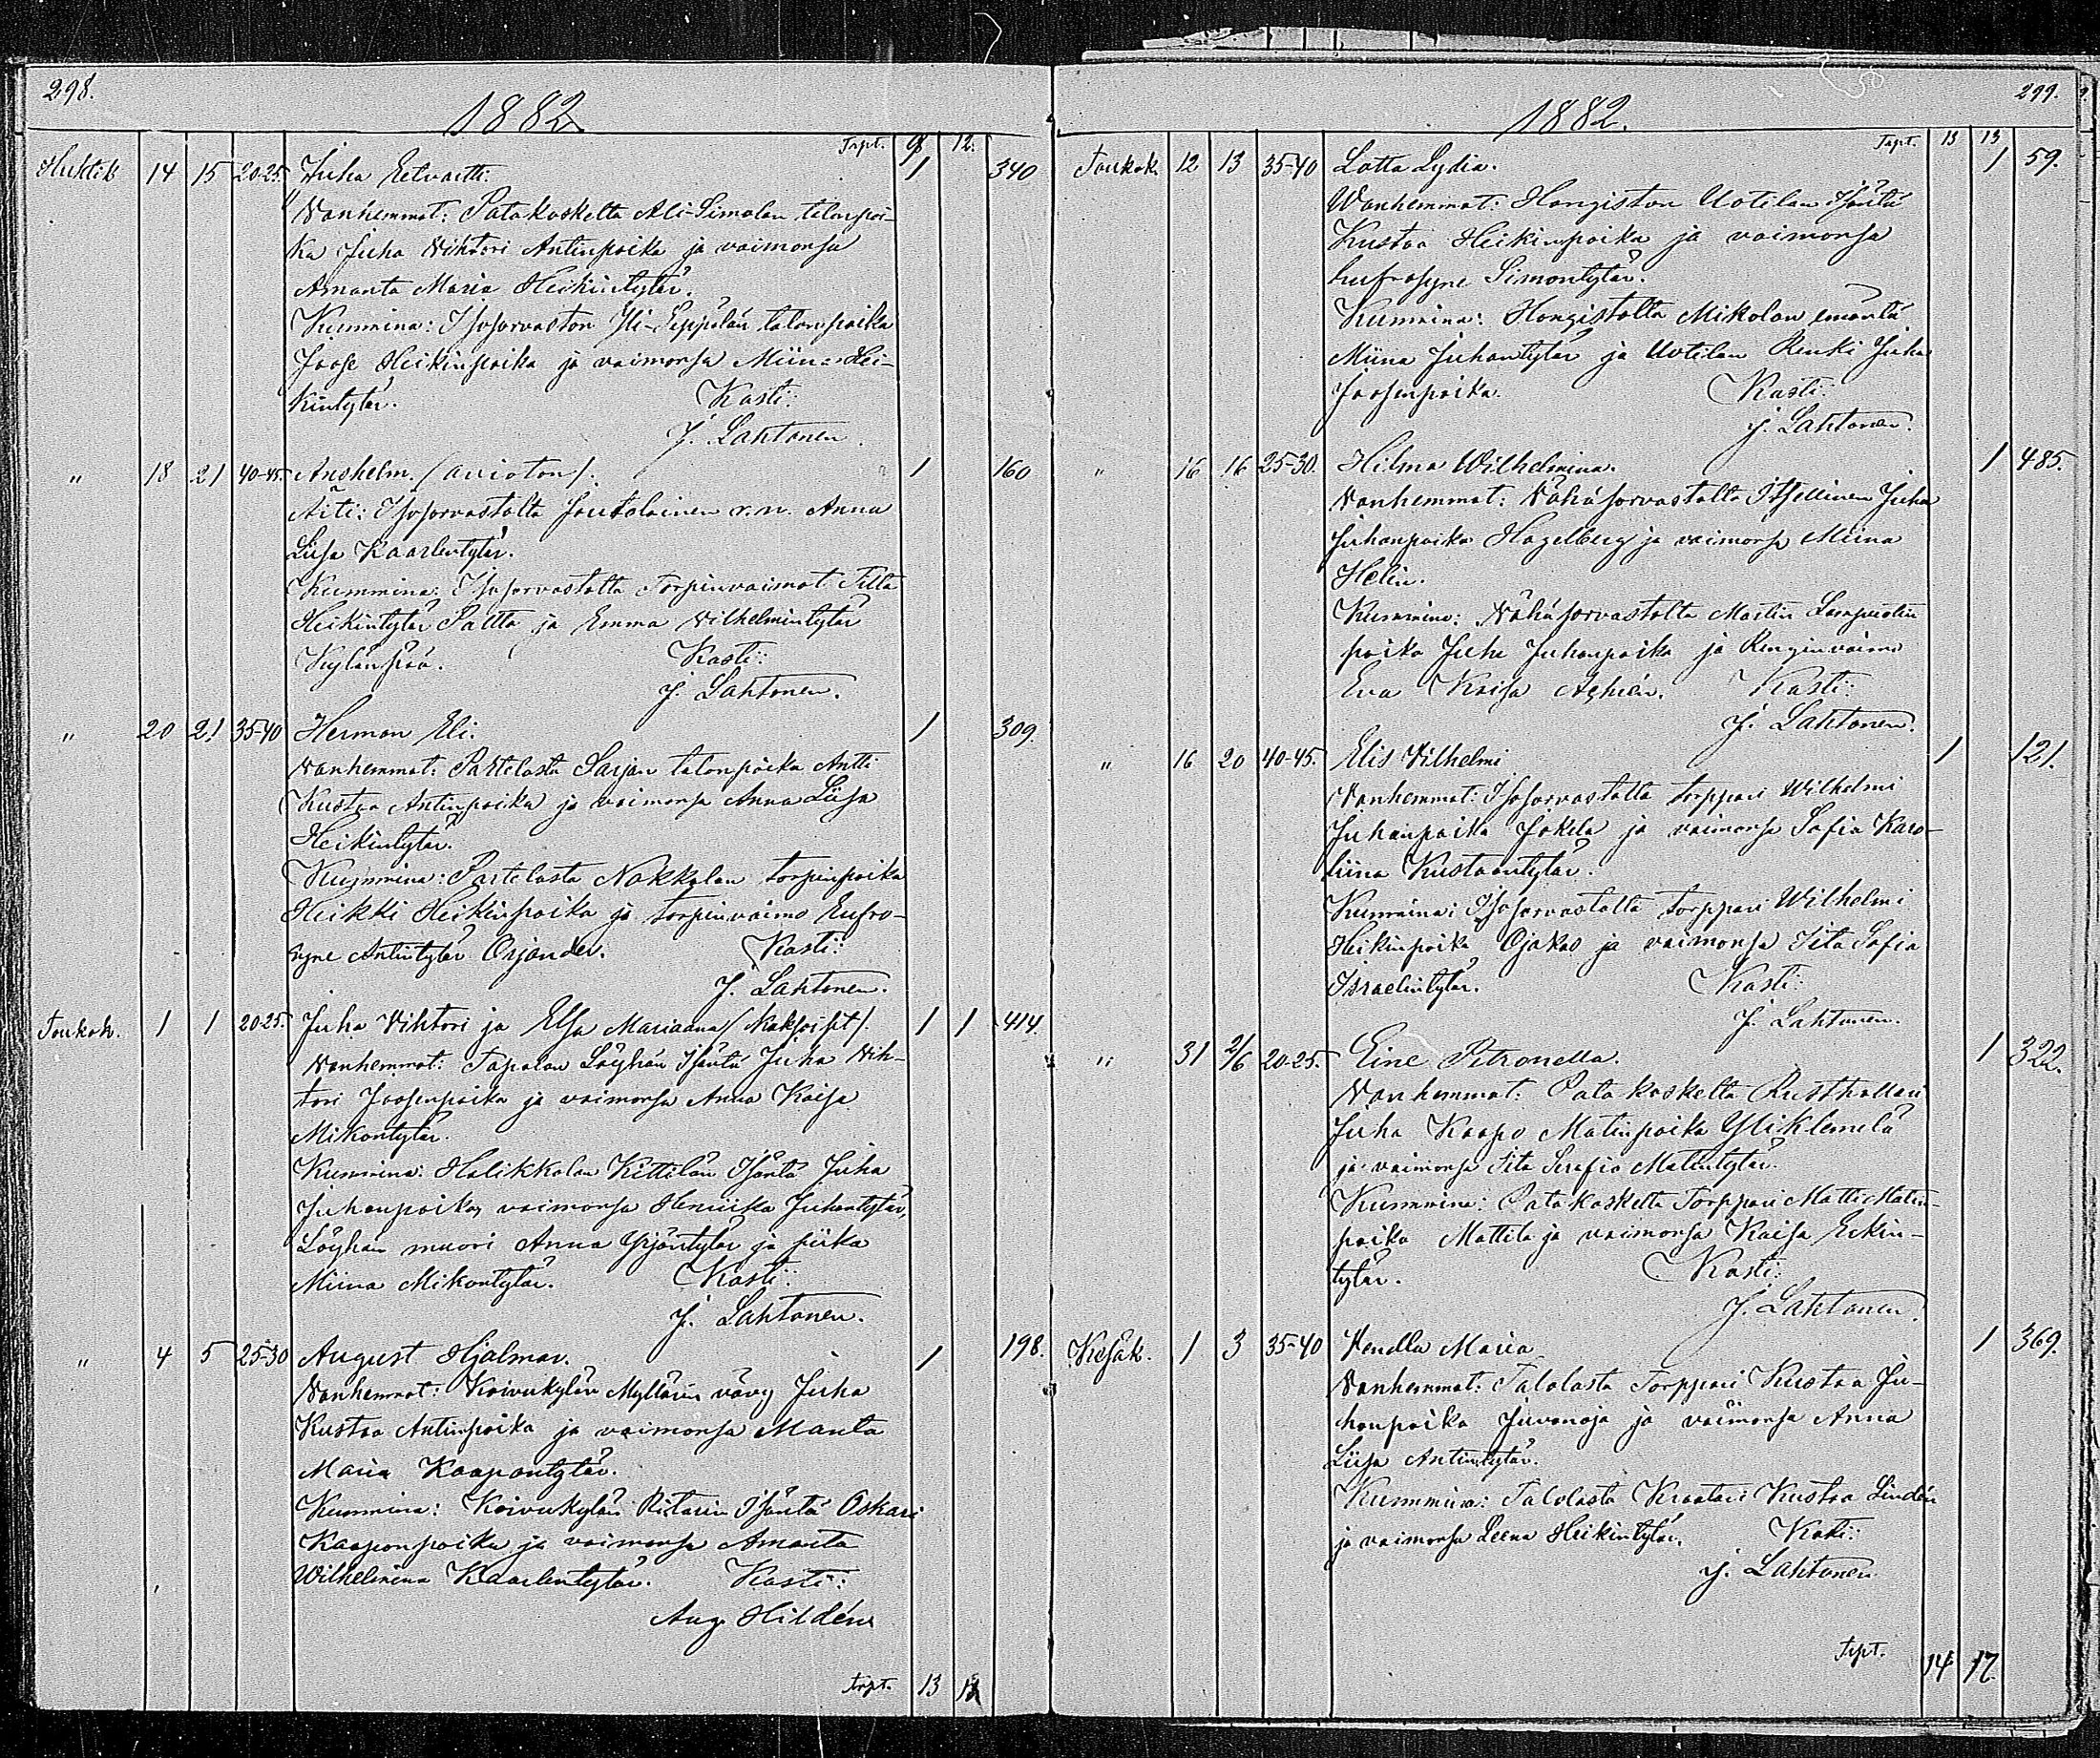 298.
1882.
Trspt. 9 12.
Huhtik 14 15 20-25. Juha Eetvartti. 1 340
Vanhemmat: Patakoskelta Ali-Simolan talonpoi-
ka Juha Vihtori Antinpoika ja vaimonsa
Amanta Maria Heikintytär.
Kummina: Isosorvaston Yli-Seppälän talonpoika
Joose Heikinpoika ja vaimonsa Miina Hei-
kintytär. Kasti:
J. Lahtonen.
" 18 21 40-45. Anshelm. (avioton). 1 160
Äiti: Isosorvastolta Joutolainen r.n. Anna
Liisa Kaarlentytär.
Kummina: Isosorvastolta Torpinvaimot Tilta
Heikintytär Paltta ja Emma Vilhelmintytär
Kylänpää. Kasti:
J. Lahtonen.
" 20 21 35-40 Herman Eli. 1 309.
Vanhemmat: Partelasta Sarjan talonpoika Antti
Kustaa Antinpoika ja vaimonsa Anna Liisa
Heikintytär.
Kummina: Partelasta Nokkalan torpinpoika
Heikki Heikinpoika ja torpinvaimo Eufro-
syne Antintytär Orjander. Kasti:
J. Lahtonen.
Toukok. 1 1 20-25. Juha Vihtori ja Elsa Mariaana (Kaksoiset). 1 1 414.
Vanhemmat: Tapalan Löyhän Isäntä Juha Vih-
tori Joosenpoika ja vaimonsa Anna Kaisa
Mikontytär.
Kummina: Halikkolan Kittilän Isäntä Juha
Juhanpoika, vaimonsa Henriika Juhantytär,
Löyhän muori Anna Yrjöntytär ja piika
Miina Mikontytär. Kasti:
J. Lahtonen.
" 4 5 25-30 August Hjalmar. 1 198.
Vanhemmat: Koivukylän Myllärin vävy Juha
Kustaa Antinpoika ja vaimonsa Manta
Maria Kaapontytär.
Kummina: Koivukylän Ritarin Isäntä Oskari
Kaaponpoika ja vaimonsa Amanta
Wilhelmina Kaarlentytär. Kasti:
Aug. Hildén
trspt. 13 13
299.
1882.
Trspt. 13 13
Toukok. 12 13 35-40 Lotta Lydia. 1 59.
Wanhemmat: Hongiston Uotilan Isäntä
Kustaa Heikinpoika ja vaimonsa
Eufrosyne Simontytär.
Kummina: Hongistolta Mikolan emäntä
Miina Juhantytär ja Uotilan Renki Juha
Joosenpoika. Kasti:
J. Lahtonen.
" 16 16 25-30. Hilma Wilhelmina. 1 485.
Vanhemmat: Vähäsorvastolta Itsellinen Juha
Juhanpoika Hagelberg ja vaimonsa Miina
Helin.
Kummina: Vähäsorvastolta Martin Lampuotin
poika Juha Juhanpoika ja Renginvaimo
Eva Kaisa Kasti:
J. Lahtonen.
" 16 20 40-45. Elis Vilhelmi 1 121.
Vanhemmat: Isosorvastolta torppari Wilhelmi
Juhanpoika Jokela ja vaimonsa Sofia Karo-
liina Kustaantytär.
Kummina: Isosorvastolta torppari Wilhelmi
Heikinpoika Ojakas ja vaimonsa Iita Sofia
Israelintytär. Kasti:
J. Lahtonen.
" 31 2/6 20-25. Eine Petronella. 1 322.
Vanhemmat: Patakoskelta Rusthollari
Juha Kaapo Matinpoika Yliklemelä
ja vaimonsa Iita Serafia Matintytär.
Kummina: Patakoskelta Torppari Matti Matin-
poika Mattila ja vaimonsa Kaisa Eekin-
tytär. Kasti:
J. Lahtonen.
Kesäk. 1 3 35-40 Hendla Maria 1 369.
Vanhemmat: Talolasta Torppari Kustaa Ju-
hanpoika Juvanoja ja vaimonsa Anna
Liisa Antintytär.
Kummina: Talolasta Kraatari Kustaa Lindén
ja vaimonsa Leena Heikintytär. Kasti:
J. Lahtonen
Trspt. 14 17